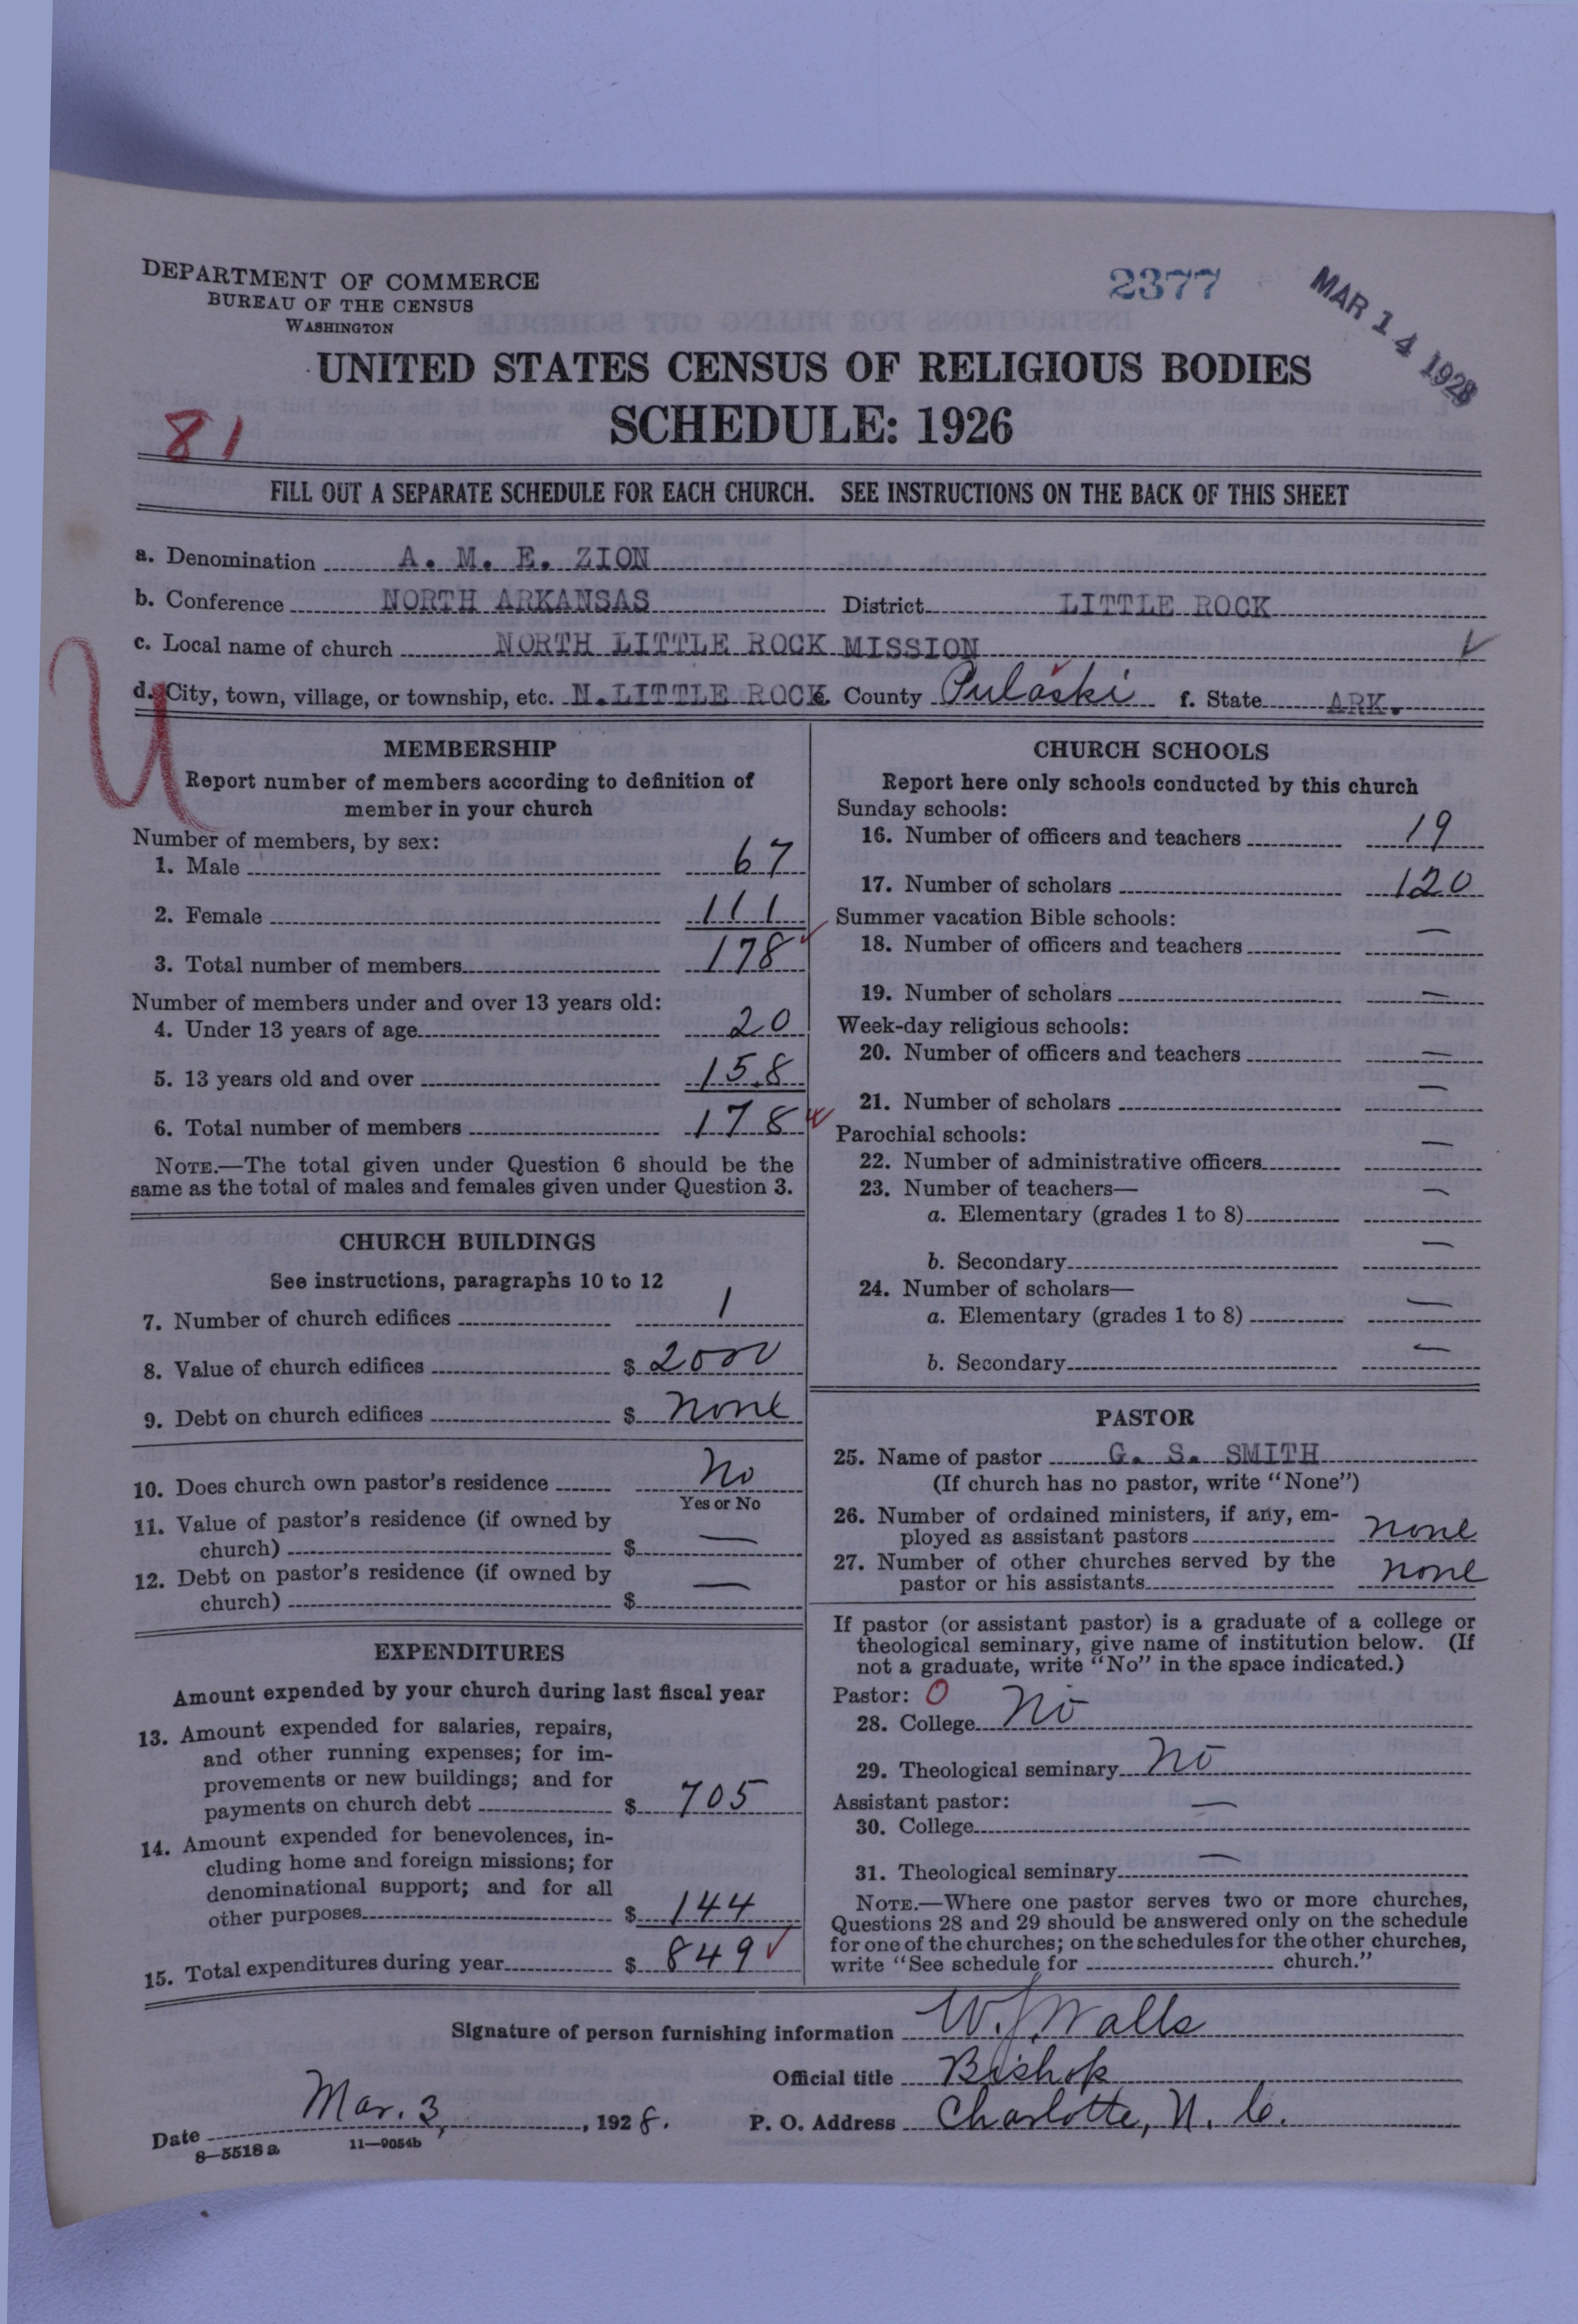 DEPARTMENT OF COMMERCE
BUREAU OF THE CENSUS
WASHINGTON
2377
MAR 14 1928
UNITED STATES CENSUS OF RELIGIOUS BODIES
SCHEDULE: 1926
81
FILL OUT A SEPARATE SCHEDULE FOR EACH CHURCH. SEE INSTRUCTIONS ON THE BACK OF THIS SHEET
a. Denomination A. M. E. ZION
b. Conference NORTH ARKANSAS District LITTLE ROCK
c. Local name of church NORTH LITTLE ROCK MISSION
d. City, town, village, or township, etc. N. LITTLE ROCK e. County Pulaski f. State ARK.
U
MEMBERSHIP
Report number of members according to definition of
member in your church
Number of members, by sex:
1. Male 67
2. Female 111
3. Total number of members 178
Number of members under and over 13 years old:
4. Under 13 years of age 20
5. 13 years old and over 158
6. Total number of members 178
NOTE.—The total given under Question 6 should be the
same as the total of males and females given under Question 3.
CHURCH BUILDINGS
See instructions, paragraphs 10 to 12
7. Number of church edifices 1
8. Value of church edifices $ 2000
9. Debt on church edifices $ none
10. Does church own pastor's residence No
Yes or No
11. Value of pastor's residence (if owned by
church) $ —
12. Debt on pastor's residence (if owned by
church) $ —
EXPENDITURES
Amount expended by your church during last fiscal year
13. Amount expended for salaries, repairs,
and other running expenses; for im-
provements or new buildings; and for
payments on church debt $ 705
14. Amount expended for benevolences, in-
cluding home and foreign missions; for
denominational support; and for all
other purposes $ 144
15. Total expenditures during year $ 849
CHURCH SCHOOLS
Report here only schools conducted by this church
Sunday schools:
16. Number of officers and teachers 19
17. Number of scholars 120
Summer vacation Bible schools:
18. Number of officers and teachers —
19. Number of scholars —
Week-day religious schools:
20. Number of officers and teachers —
21. Number of scholars —
Parochial schools:
22. Number of administrative officers —
23. Number of teachers—
a. Elementary (grades 1 to 8) —
b. Secondary —
24. Number of scholars—
a. Elementary (grades 1 to 8) —
b. Secondary —
PASTOR
25. Name of pastor G. S. SMITH
(If church has no pastor, write "None")
26. Number of ordained ministers, if any, em-
ployed as assistant pastors none
27. Number of other churches served by the
pastor or his assistants none
If pastor (or assistant pastor) is a graduate of a college or
theological seminary, give name of institution below. (If
not a graduate, write "No" in the space indicated.)
Pastor: 0
28. College No
29. Theological seminary No
Assistant pastor:
30. College —
31. Theological seminary —
NOTE.—Where one pastor serves two or more churches,
Questions 28 and 29 should be answered only on the schedule
for one of the churches; on the schedules for the other churches,
write "See schedule for church."
Signature of person furnishing information W. J. Walls
Official title Bishop
Date Mar. 3, 1928. P. O. Address Charlotte, N. C.
8—5518 a 11—9054b